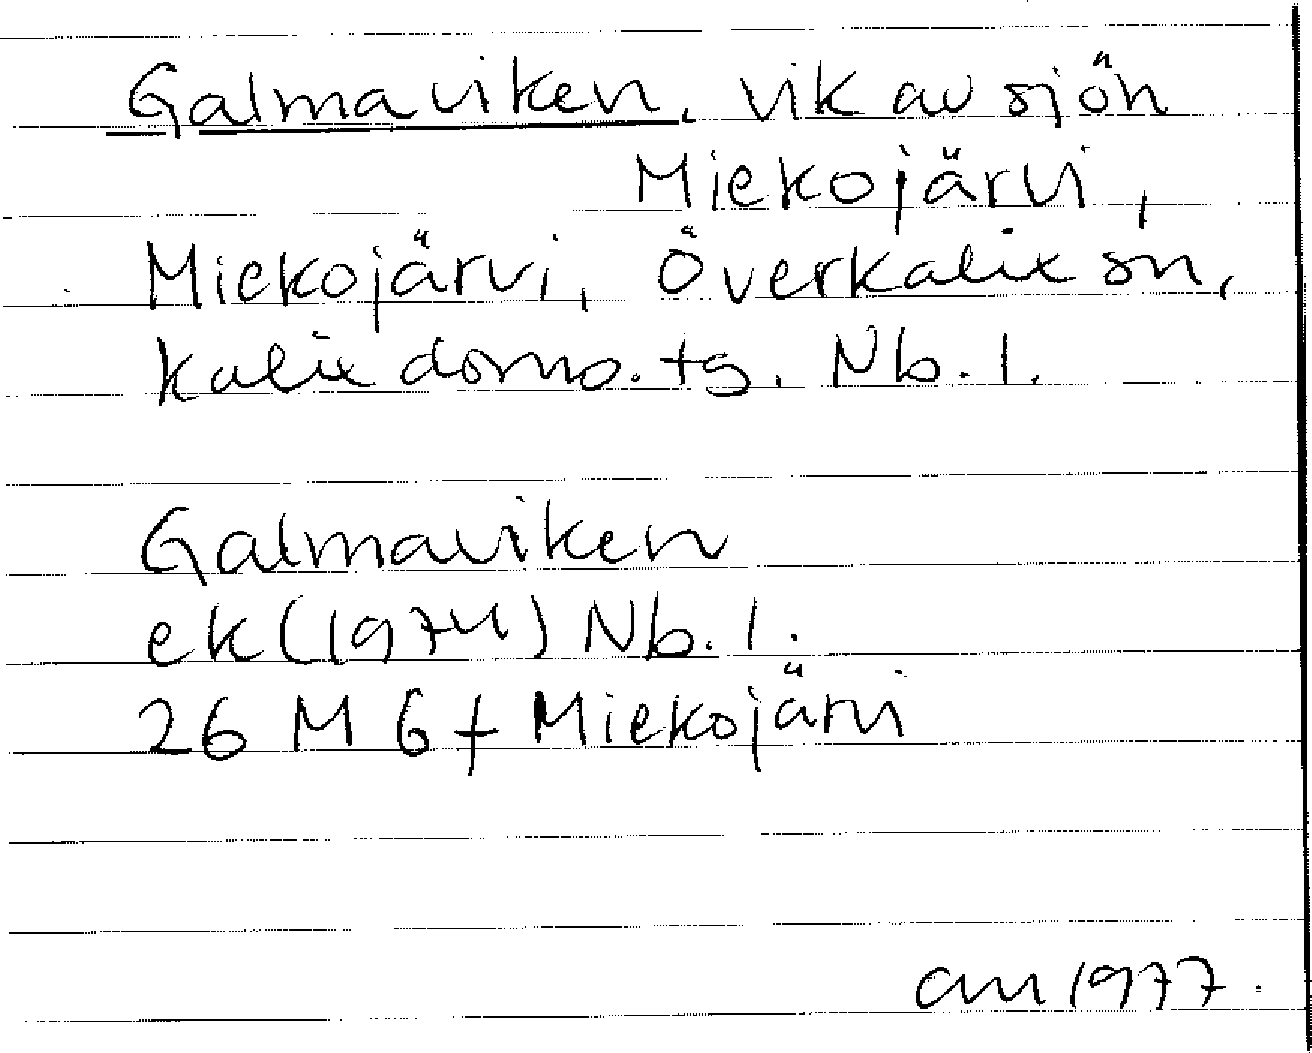 Galmaviken. vik av sjön
Miekojärvi,
Miekojärvi, Överkalix sn,
Kalix doms. tg. Nb. l.
Galmaviken
ek (1974) Nb. l.
26 M 6 f Miekojärvi
am 1977.